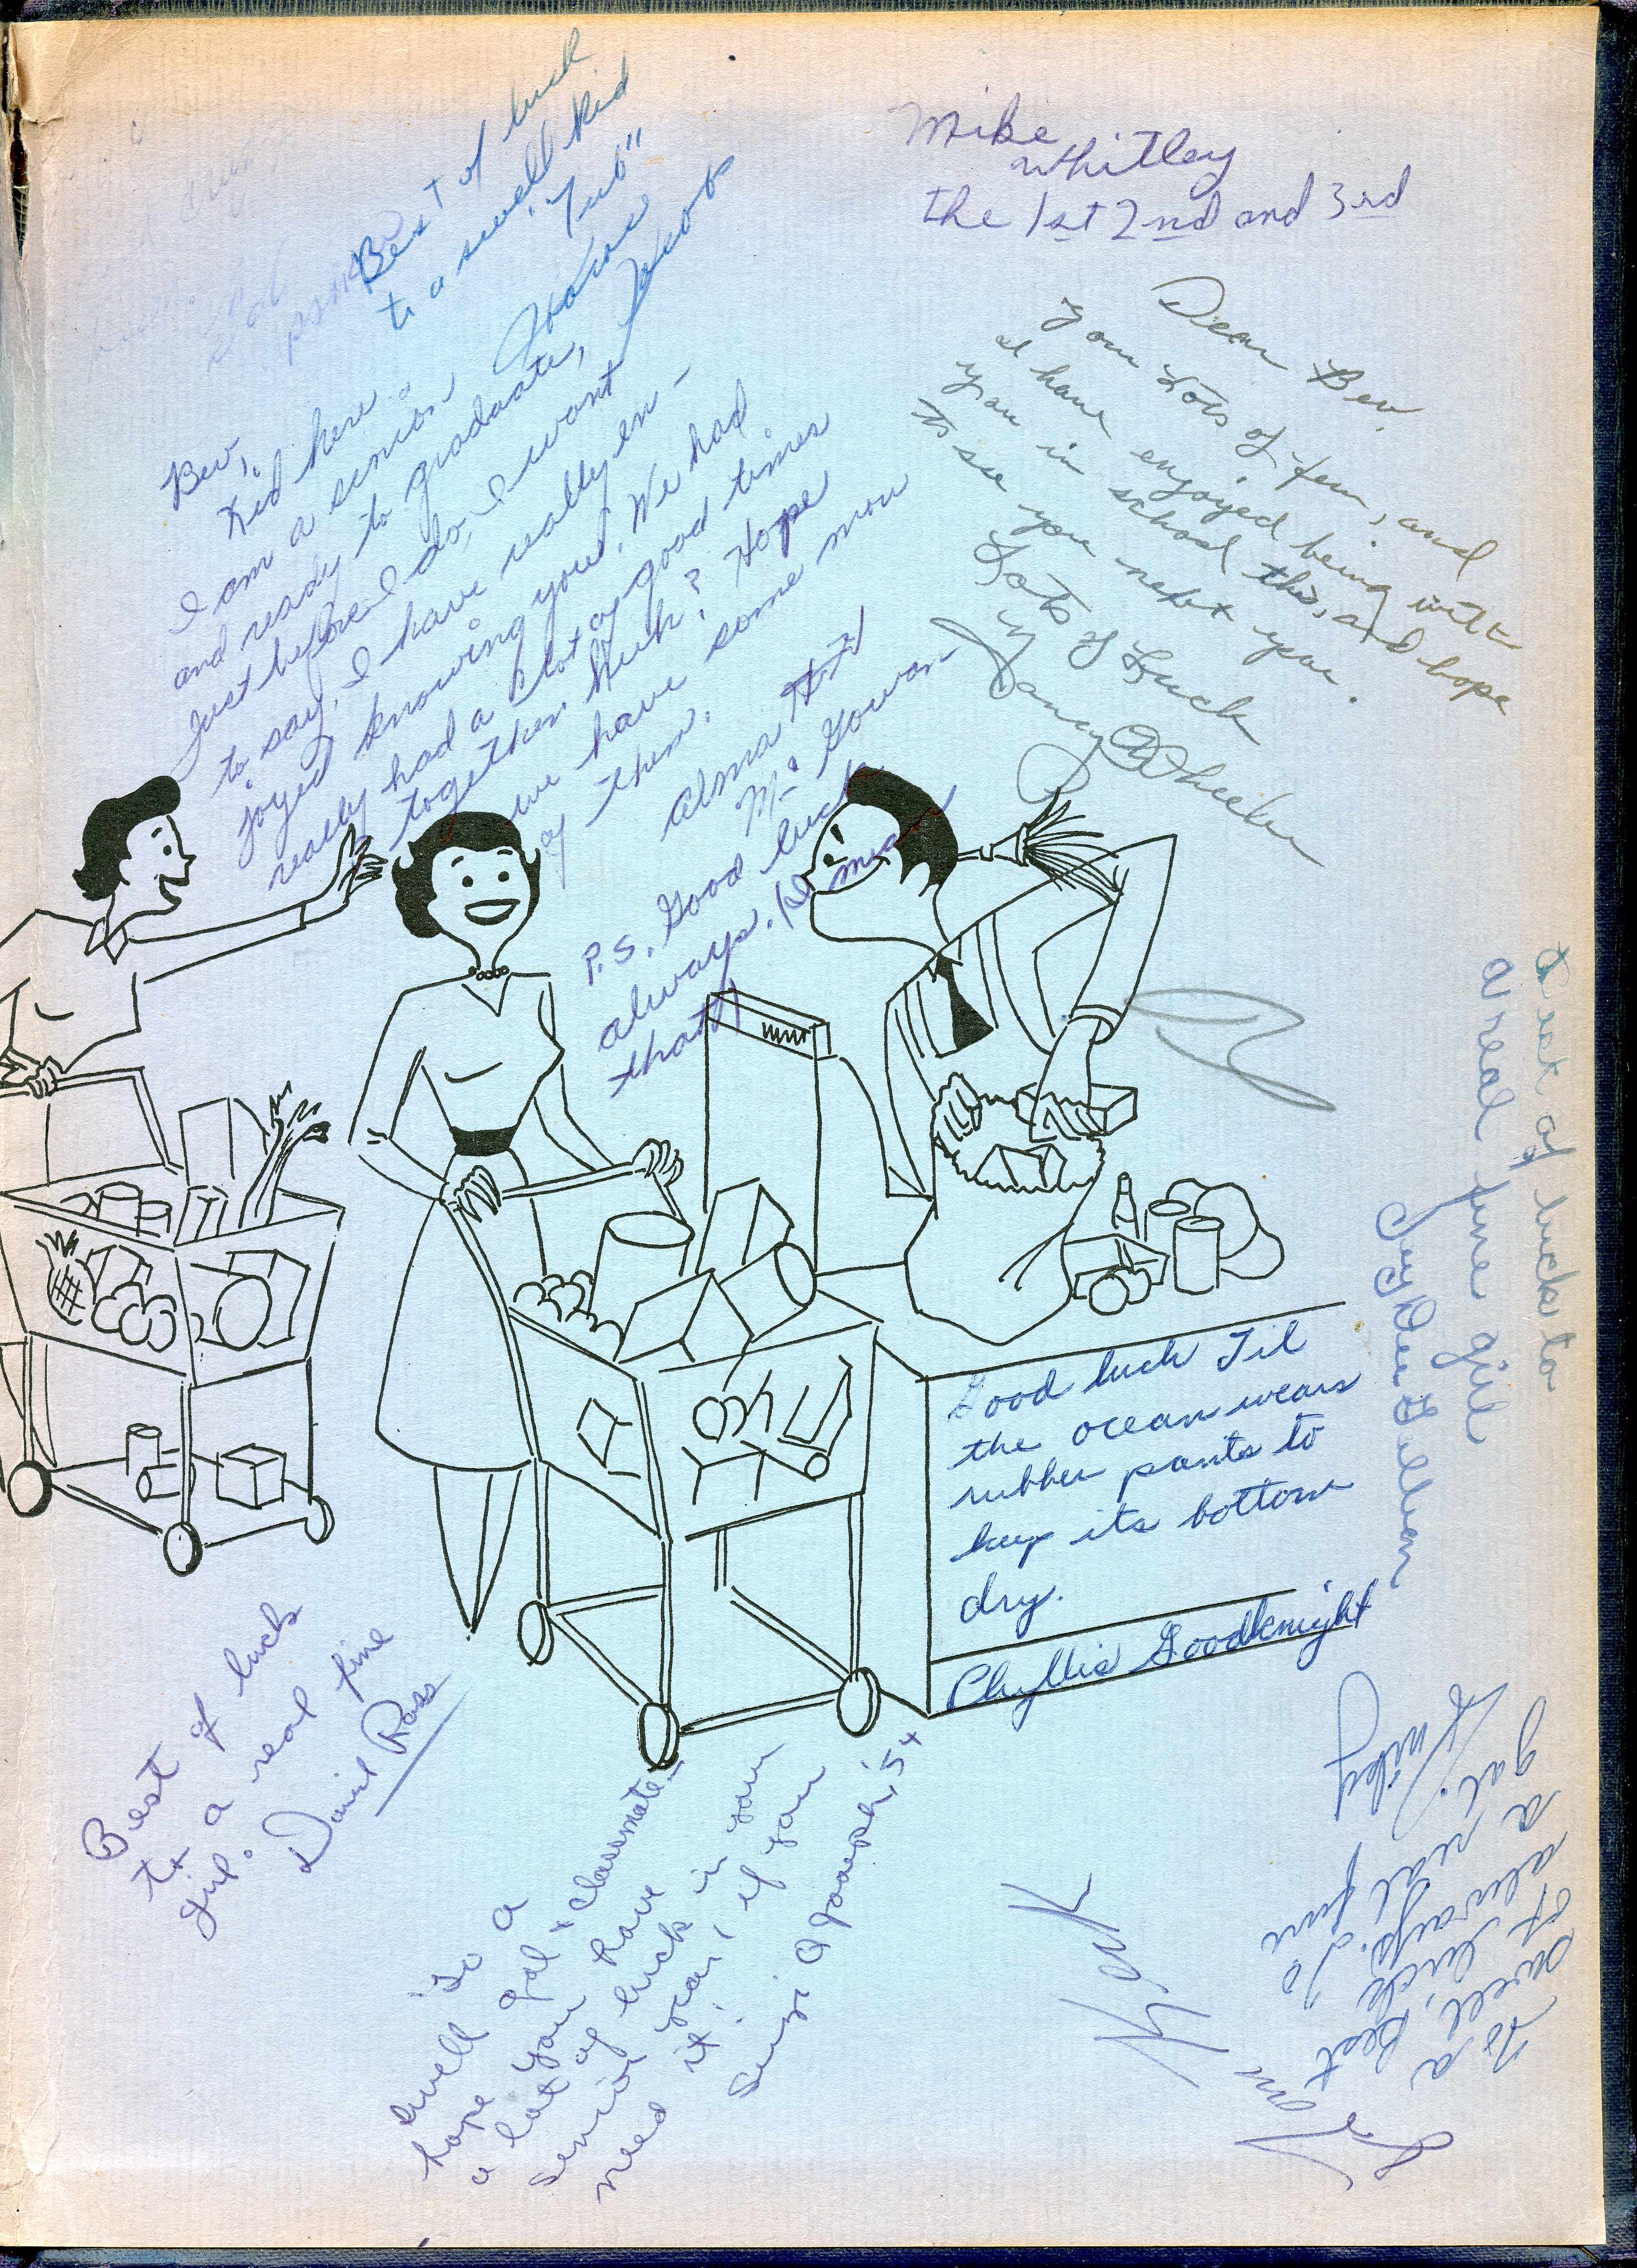 Best of luck
to a swell kid
"Tub"
Jacobs
Mike
Whitley
the 1st 2nd and 3rd
Bev,
Kid here
I am a senior
and ready to graduate,
Just before I do, I want
to say, I have really en-
joyed knowing you. We had
really had a lot of good times
together. Huh? Hope
we have some more
of them.
Alma
McGowan
P.S. Good luck
always. (I mean
that)
Dear Bev,
you lots of fun, and
I have enjoyed being with
you in school this, and hope
to see you next year.
Lots of Luck
Nancy Wheeler
Best of luck to
a real fine girl
Good luck Til
the ocean wears
rubber pants to
keep its bottom
dry.
Phyllis Goodknight
Best of luck
to a real fine
girl.
David Ross
To a
swell gal + classmate-
hope you have
a lot of luck in your
senior year, if you
need it!
'54
To a
swell, Best
of luck
always. To
a real fine
gal.